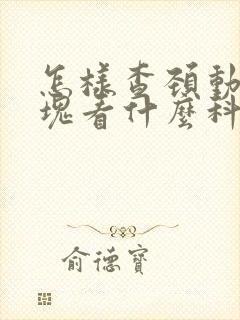 怎樣查頚動
塊看什麼科
俞德寶